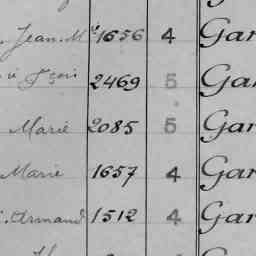 Jean-M 1656 4 Gar
2469 5 Gar
Marie 2085 5 Gar
Marie 1657 4 Gar
Armand 1512 4 Gar